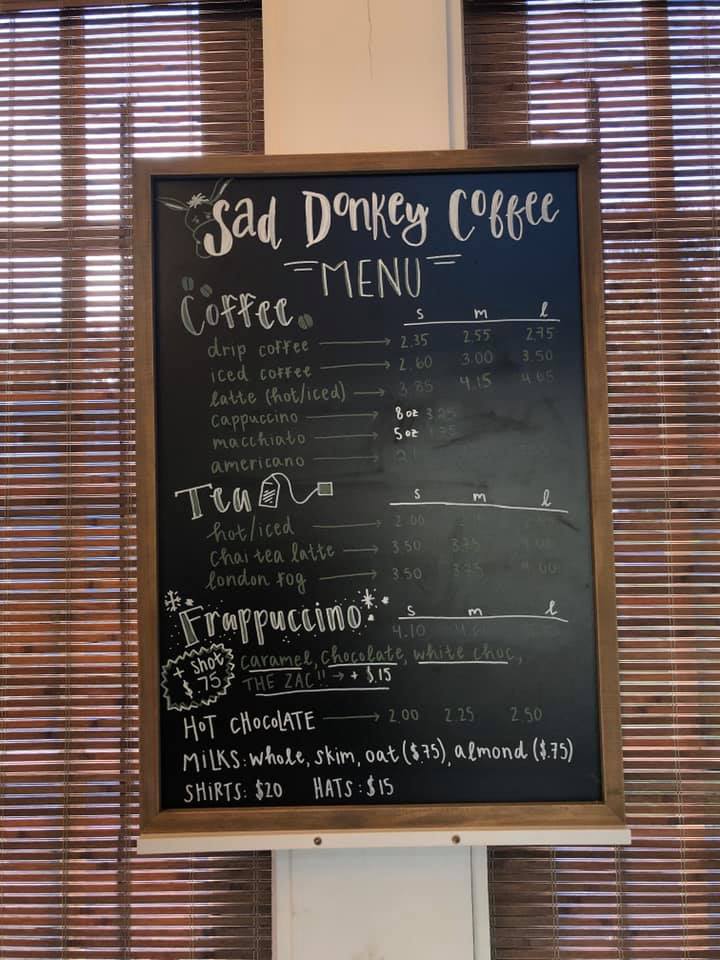 Sad Donkey Coffee
MENU
Coffee
s m l
drip coffee → 2.35 2.55 2.75
iced coffee → 2.60 3.00 3.50
latte (hot/iced) → 3.85 4.15 4.65
cappuccino → 8oz 3.25
macchiato → 5oz
americano →
Tea
s m l
hot/iced → 2.00
chai tea latte → 3.50 3.75 4.00
london fog → 3.50 3.75 4.00
Frappuccino
s m l
4.10
+ shot
$.75
caramel, chocolate, white choc,
THE ZAC!! → + $.15
HOT CHOCOLATE → 2.00 2.25 2.50
MILKS: whole, skim, oat ($.75), almond ($.75)
SHIRTS: $20 HATS: $15